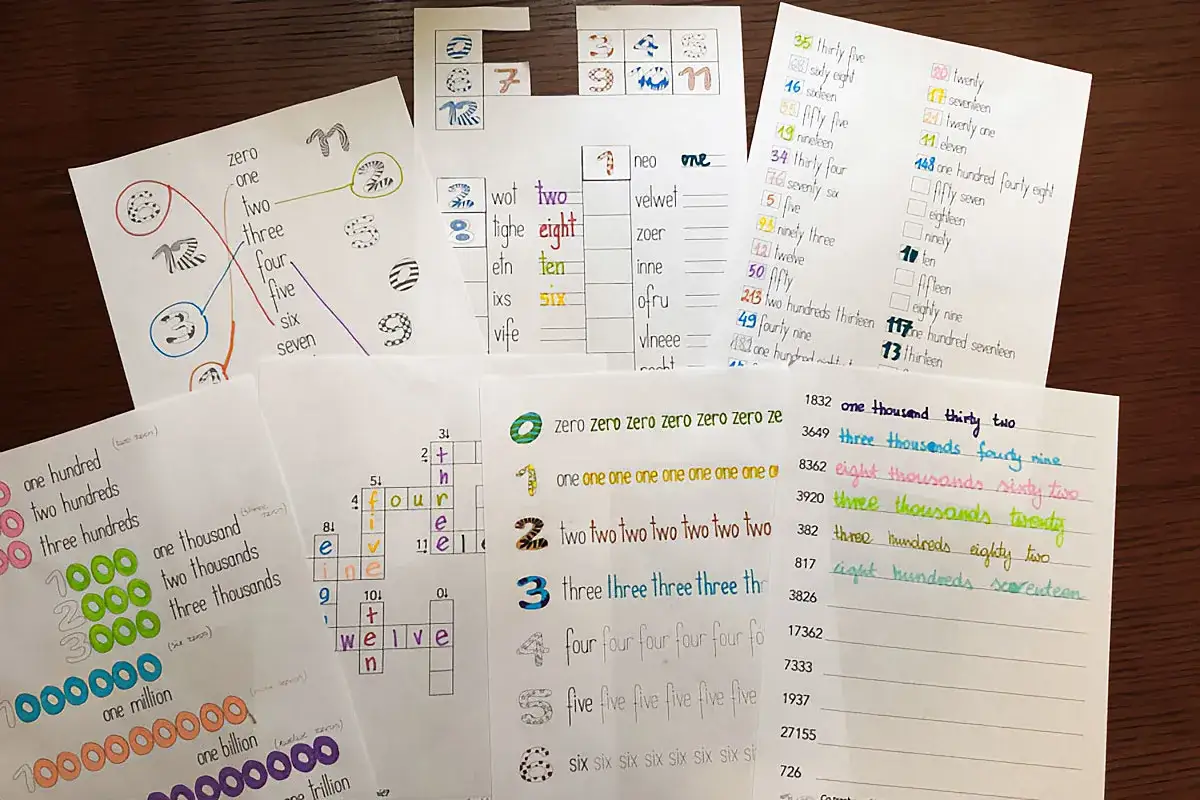 zero
one
two
three
four
five
six
seven
11
2
5
0
9
6
12
3
0
3 4 5
6 7
9 10 11
12
1 neo one
2 wot two
velwet
8 tighe eight
zoer
etn ten
inne
ixs six
ofru
vife
vlneee
35 thirty five
68 sixty eight
16 sixteen
55 fifty five
19 nineteen
34 thirty four
76 seventy six
5 five
93 ninety three
12 twelve
50 fifty
213 two hundreds thirteen
49 fourty nine
182 one hundred
20 twenty
17 seventeen
21 twenty one
11 eleven
148 one hundred fourty eight
fifty seven
eighteen
ninety
10 ten
fifteen
eighty nine
117 one hundred seventeen
13 thirteen
(two zeros)
one hundred
two hundreds
three hundreds
(three zeros)
1000 one thousand
2000 two thousands
3000 three thousands
(six zeros)
1000000
one million
(nine zeros)
1000000000
one billion
(twelve zeros)
one trillion
3↓
2 t
h
5↓
4 four
i
e
8↓
e v 11 ele
ine
g
10↓ 0↓
t
welve
n
0 zero zero zero zero zero ze
1 one one one one one one one o
2 two two two two two two two
3 three three three three th
4 four four four four four fo
5 five five five five five five
6 six six six six six six si
1832 one thousand thirty two
3649 three thousands fourty nine
8362 eight thousands sixty two
3920 three thousands twenty
382 three hundreds eighty two
817 eight hundreds seventeen
3826
17362
7333
1937
27155
726